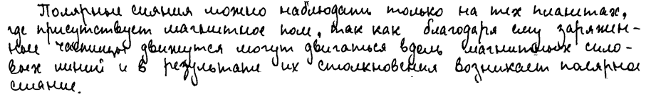 Полярные сияния можно наблюдать только на тех планетах,
где присутствует магнитное поле, так как благодаря ему заряжен-
ные частицы движутся могут двигаться вдоль магнитных сило-
вых линий и в результате их столкновения возникает полярное
сияние.